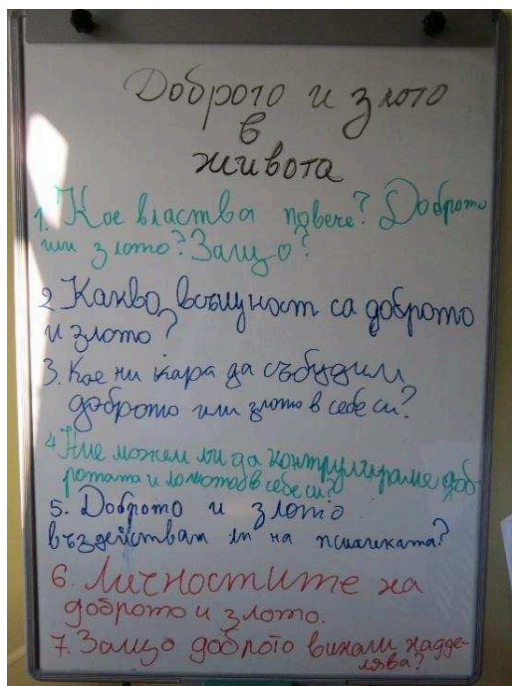 Доброто и злото
в
живота
1. Кое властва повече? Доброто
или злото? Защо?
2 Какво всъщност са доброто
и злото?
3. Кое ни кара да събудим
доброто или злото в себе си?
4 Ние можем ли да контролираме доб-
ротата и лошото в себе си?
5. Доброто и злото
въздействат ли на психиката?
6. Личностите на
доброто и злото.
7. Защо доброто винаги надде-
лява?